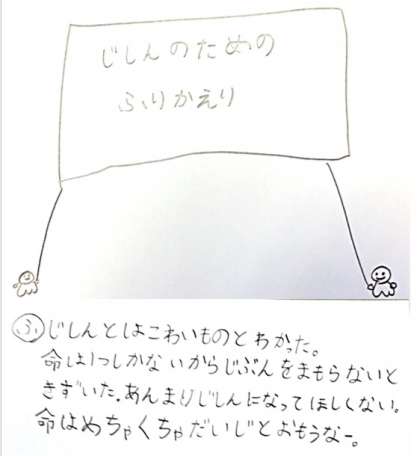 じしんのための
ふりかえり
ふ じしんとはこわいものとわかった。
命は1つしかないからじぶんをまもらないと
きずいた。あんまりじしんになってほしくない。
命はめちゃくちゃだいじとおもうなー。